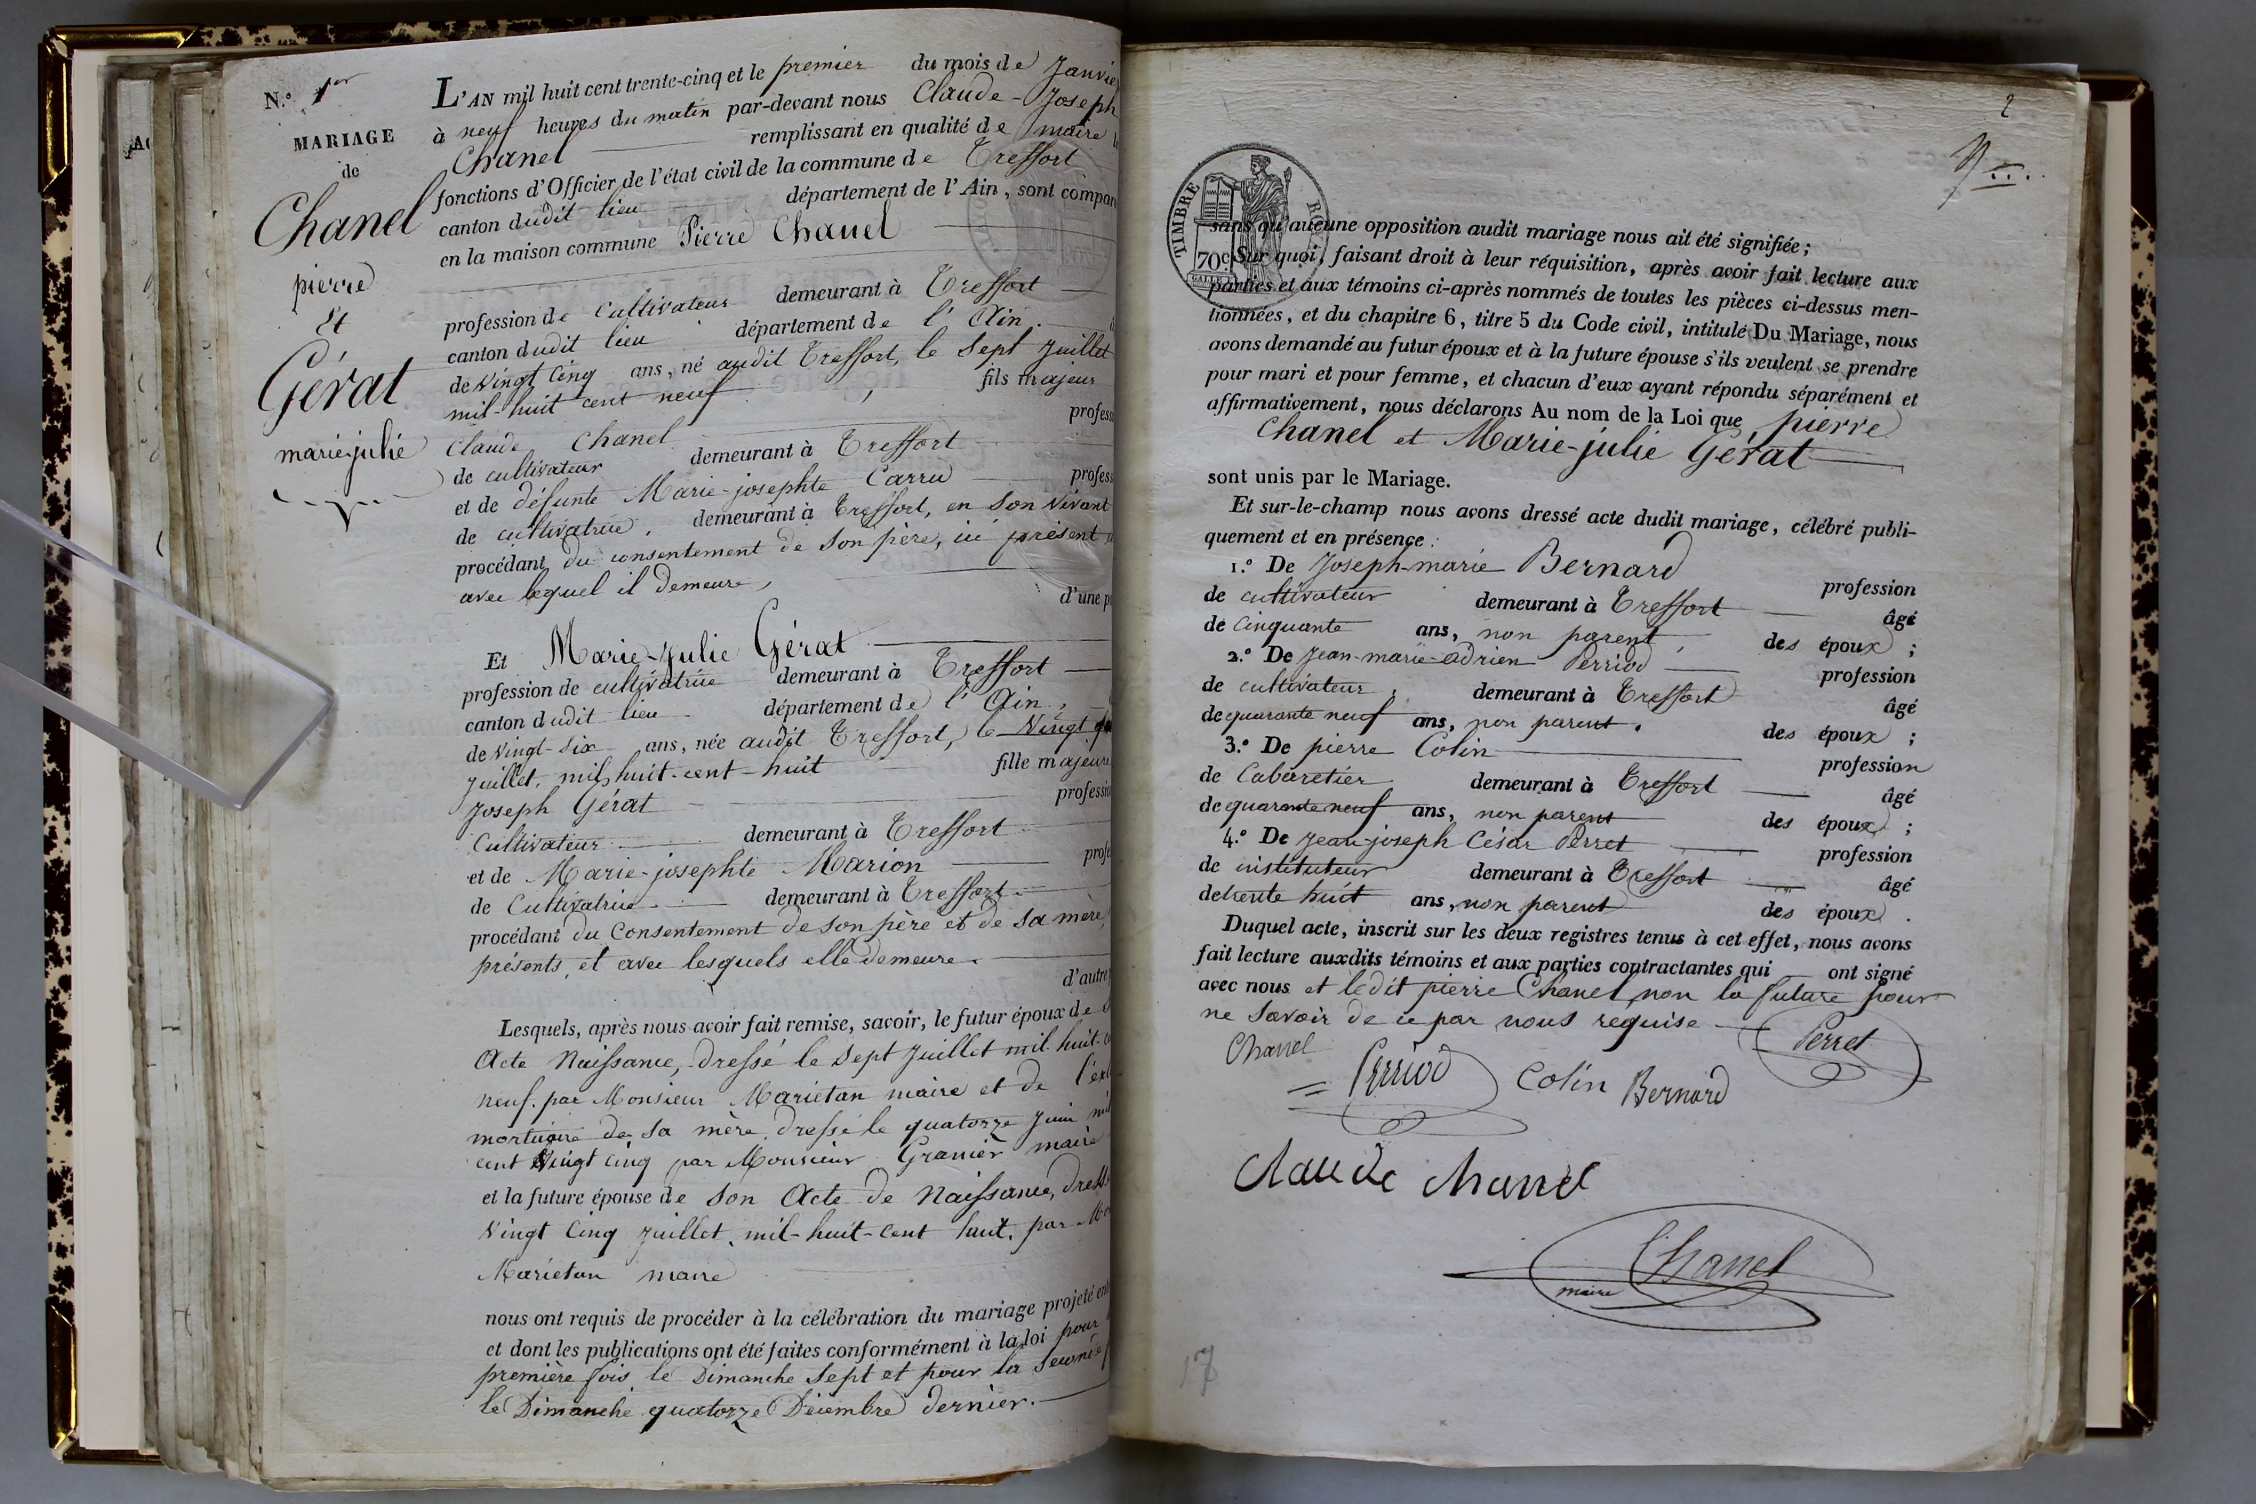 N.o 1er
MARIAGE
de
Chanel
pierre
Et
Gérat
marie-julie
L'AN mil huit cent trente-cinq et le premier du mois de Janvier
à neuf heures du matin par-devant nous Claude-Joseph
Chanel remplissant en qualité de maire
fonctions d'Officier de l'état civil de la commune de Treffort
canton dudit lieu département de l'Ain, sont compar
en la maison commune Pierre Chanel
profession de cultivateur demeurant à Treffort
canton dudit lieu département de l'Ain.
de vingt cinq ans, né audit Treffort, le sept juillet
mil-huit cent neuf, fils majeur
profess
Claude Chanel
de cultivateur demeurant à Treffort
et de défunte Marie-josephte Carru profess
de cultivatrice, demeurant à Treffort, en son vivant
procédant du consentement de son père, ici présent
avec lequel il demeure,
d'une p
Et Marie-Julie Gérat
profession de cultivatrice demeurant à Treffort
canton dudit lieu département de l'Ain,
de vingt-six ans, née audit Treffort, le vingt
juillet, mil huit-cent-huit fille majeure
Joseph Gérat professi
Cultivateur demeurant à Treffort
et de Marie-josephte Marion profe
de Cultivatrice demeurant à Treffort
procédant du Consentement de son père et de sa mère,
présents, et avec lesquels elle demeure.
d'autre
Lesquels, après nous avoir fait remise, savoir, le futur époux de
Acte Naissance, dressé le sept juillet mil-huit-
neuf. par Monsieur Marietan maire et de l'ex
mortuaire de sa mère dressé le quatorze juin mil
cent vingt cinq par Monsieur Granier maire
et la future épouse de son Acte de Naissance, dress
vingt cinq juillet, mil-huit-cent huit. par M
Marietan maire
nous ont requis de procéder à la célébration du mariage projeté ent
et dont les publications ont été faites conformément à la loi pour
première fois le Dimanche sept et pour la seconde
le Dimanche quatorze Décembre dernier.
2
TIMBRE RO
70c
sans qu'aucune opposition audit mariage nous ait été signifiée;
Sur quoi, faisant droit à leur réquisition, après avoir fait lecture aux
parties et aux témoins ci-après nommés de toutes les pièces ci-dessus men-
tionnées, et du chapitre 6, titre 5 du Code civil, intitulé Du Mariage, nous
avons demandé au futur époux et à la future épouse s'ils veulent se prendre
pour mari et pour femme, et chacun d'eux ayant répondu séparément et
affirmativement, nous déclarons Au nom de la Loi que pierre
Chanel et Marie-julie Gérat
sont unis par le Mariage.
Et sur-le-champ nous avons dressé acte dudit mariage, célébré publi-
quement et en présence:
1.o De Joseph-marie Bernard profession
de cultivateur demeurant à Treffort âgé
de cinquante ans, non parent, des époux;
2.o De Jean-marie-adrien Perriod profession
de cultivateur, demeurant à Treffort âgé
de quarante neuf ans, non parent, des époux;
3.o De pierre Colin profession
de Cabaretier demeurant à Treffort âgé
de quarante neuf ans, non parent des époux;
4.o De Jean-joseph César Perret profession
de instituteur demeurant à Treffort âgé
de trente huit ans, non parent des époux.
Duquel acte, inscrit sur les deux registres tenus à cet effet, nous avons
fait lecture auxdits témoins et aux parties contractantes qui ont signé
avec nous et ledit pierre Chanel, non la future pour
ne savoir de ce par nous requise
Chanel Perriod Colin Bernard Perret
Claude Chanel
Chanel
maire
17